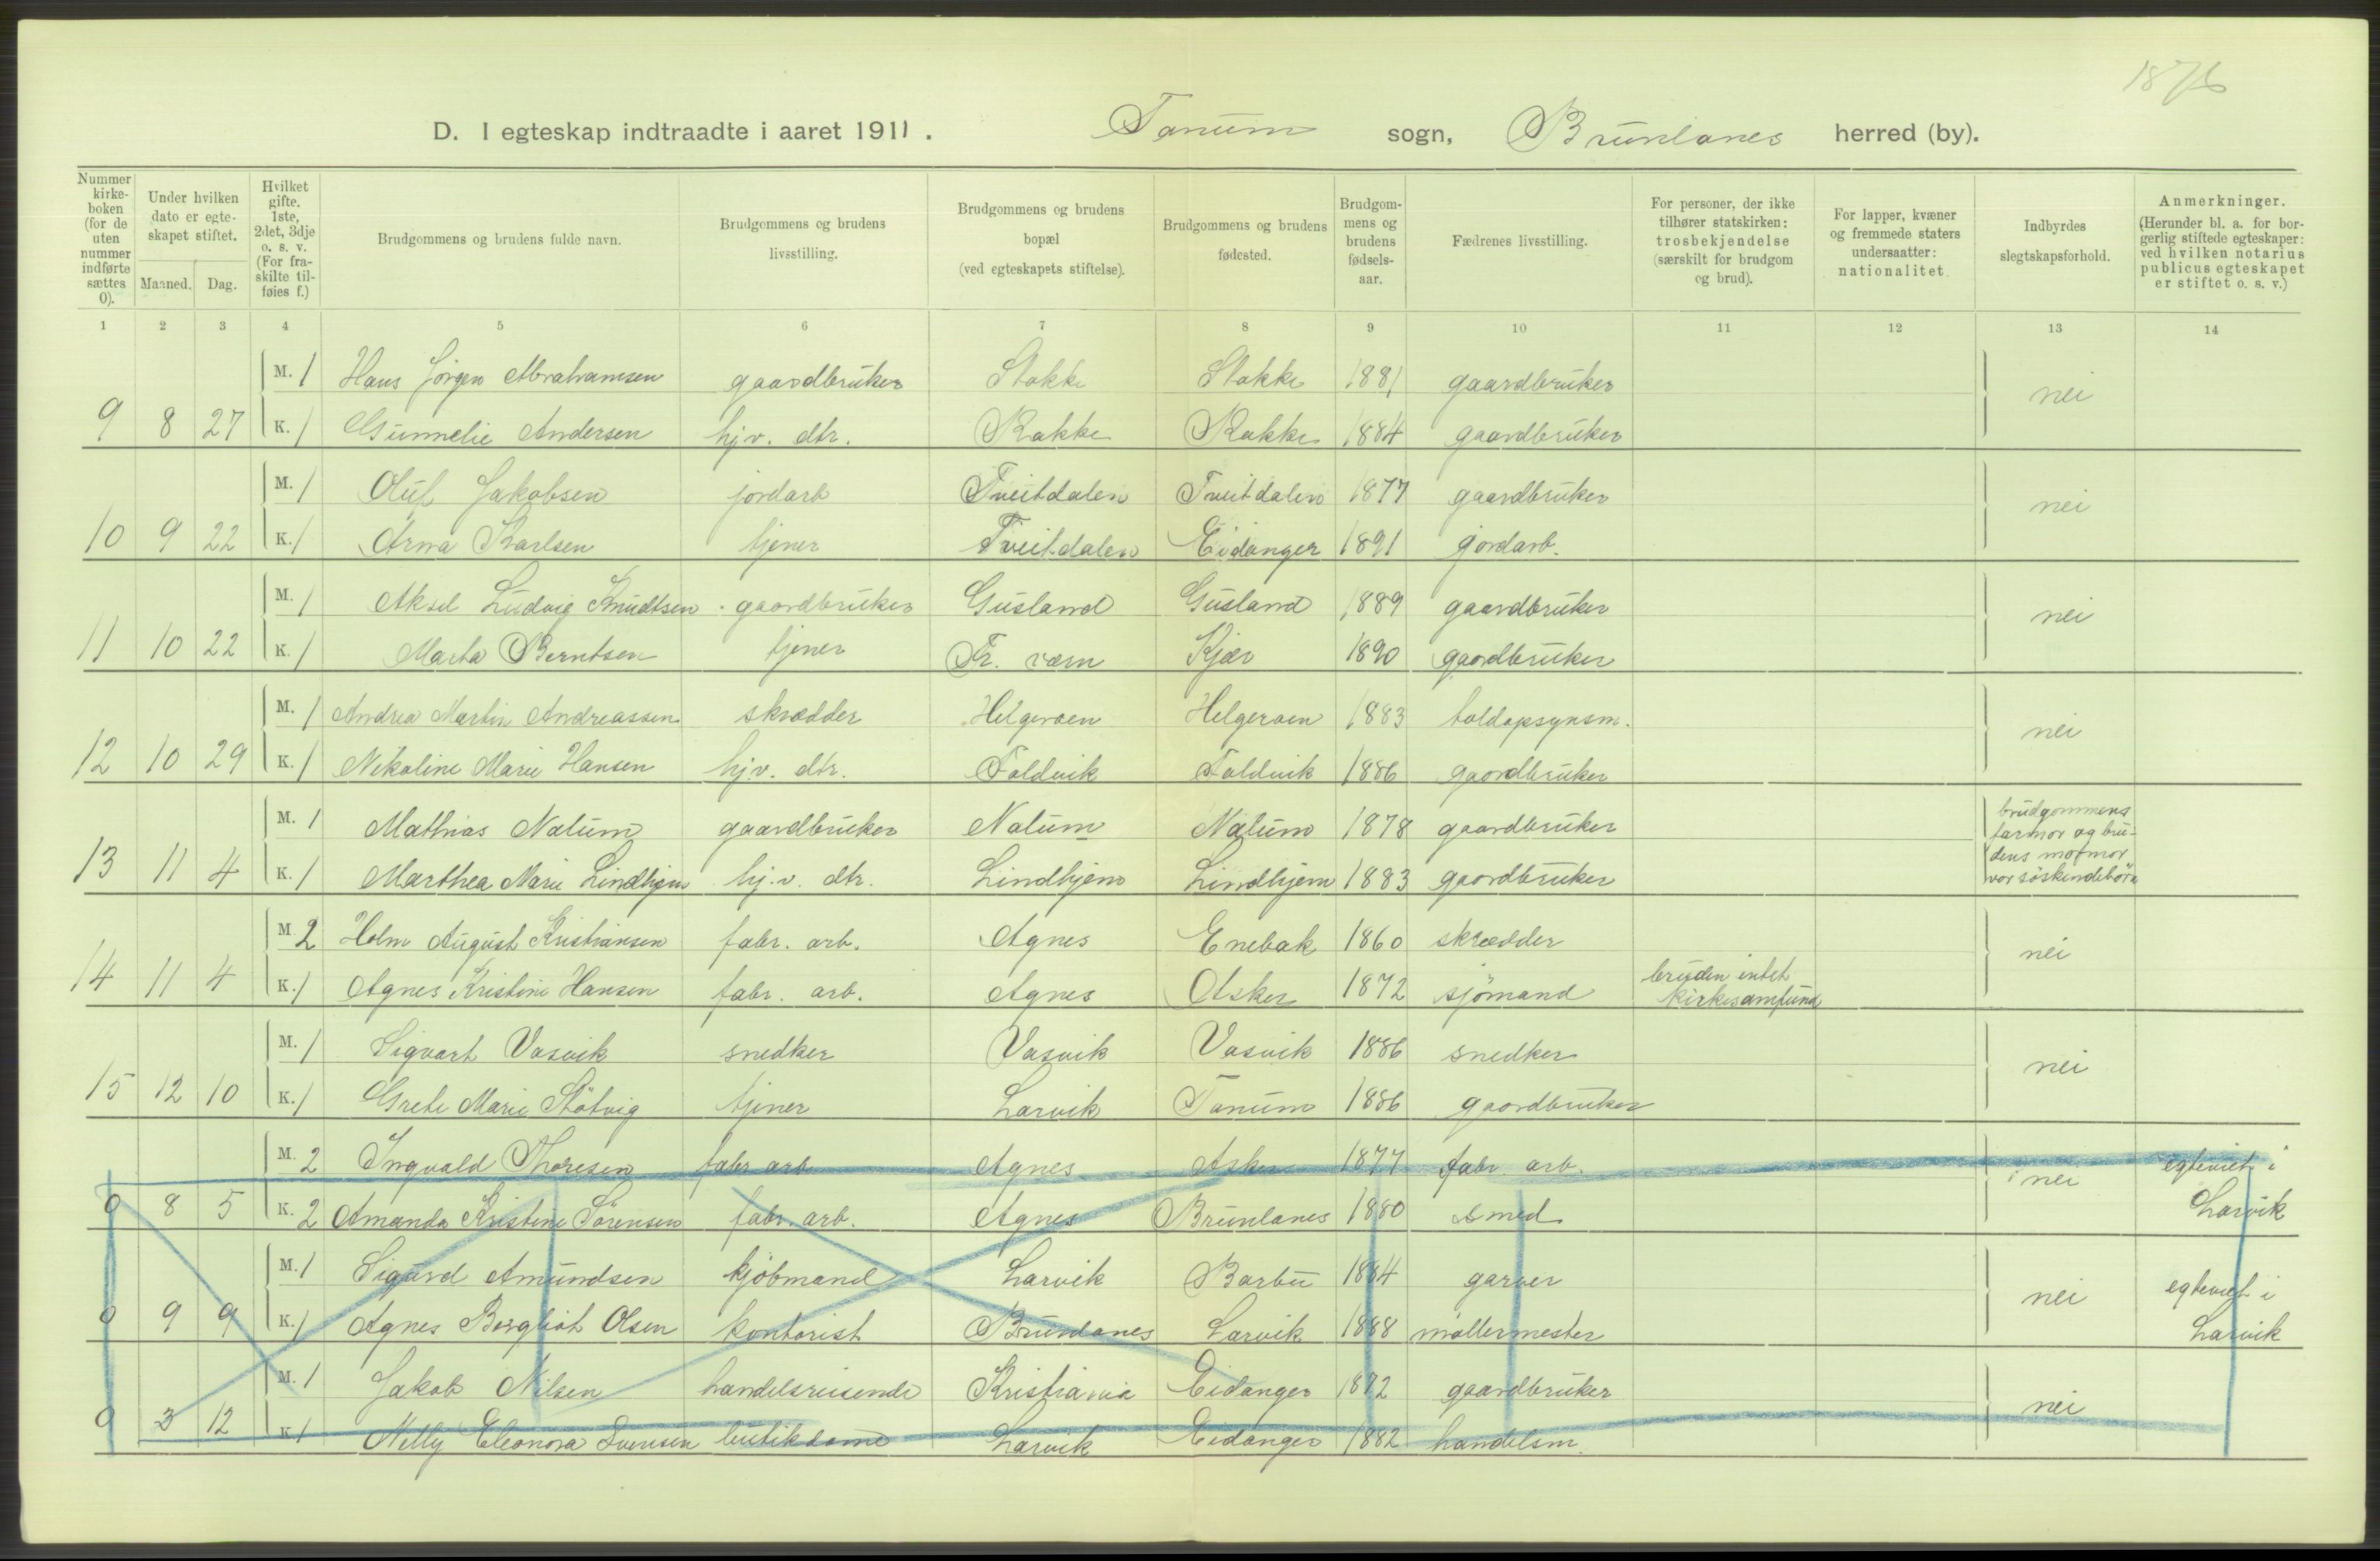 187b
D. I egteskap indtraadte i aaret 1911. Tanum sogn, Brunlanes herred (by).
Nummer kirke-boken (for de uten nummer indførte sættes 0).
Under hvilken dato er egte-skapet stiftet.
Maaned. Dag.
Hvilket gifte. 1ste, 2det, 3dje o. s. v. (For fra-skilte til-føies f.)
Brudgommens og brudens fulde navn.
Brudgommens og brudens livsstilling.
Brudgommens og brudens bopæl (ved egteskapets stiftelse).
Brudgommens og brudens fødested.
Brudgom-mens og brudens fødsels-aar.
Fædrenes livsstilling.
For personer, der ikke tilhører statskirken: trosbekjendelse (særskilt for brudgom og brud).
For lapper, kvæner og fremmede staters undersaatter: nationalitet.
Indbyrdes slegtskapsforhold.
Anmerkninger. (Herunder bl. a. for bor-gerlig stiftede egteskaper: ved hvilken notarius publicus egteskapet er stiftet o. s. v.)
1 2 3 4 5 6 7 8 9 10 11 12 13 14
M. 1 Hans Jörgen Abrahamsen gaardbruker Stokke Stokke 1881 gaardbruker nei
9 8 27 K. 1 Gunnelie Andersen hj.v. dtr. Rakke Rakke 1884 gaardbruker
M. 1 Oluf Jakobsen jordarb Tveitdalen Tveitdalen 1877 gaardbruker nei
10 9 22 K. 1 Anna Karlsen tjener Tveitdalen Eidanger 1891 jordarb.
M. 1 Aksel Ludvig Knudtsen gaardbruker Gusland Gusland 1889 gaardbruker nei
11 10 22 K. 1 Marta Berntsen tjener Fr. værn Kjær 1890 gaardbruker
M. 1 Andrea Martin Andreassen skrædder Helgeroen Helgeroen 1883 toldopsynsm. nei
12 10 29 K. 1 Nikoline Marie Hansen hj.v. dtr. Foldvik Foldvik 1886 gaardbruker
M. 1 Mathias Nalum gaardbruker Nalum Nalum 1878 gaardbruker brudgommens farmor og bru-
13 11 4 K. 1 Marthea Marie Lindhjem hj.v. dtr. Lindhjem Lindhjem 1883 gaardbruker dens mormor var söskendebörn
M. 2 Holm August Kristiansen fabr. arb. Agnes Enebak 1860 skrædder nei
14 11 4 K. 1 Agnes Kristine Hansen fabr. arb. Agnes Asker 1872 sjömand bruden intet kirkesamfund
M. 1 Sigvart Vasvik snedker Vasvik Vasvik 1886 snedker nei
15 12 10 K. 1 Grete Marie Stötvig tjener Larvik Tanum 1886 gaardbruker
M. 2 Ingvald Thoresen fabr arb Agnes Asker 1877 fabr arb. nei egteviet i
0 8 5 K. 2 Amanda Kristine Sörensen fabr. arb. Agnes Brunlanes 1880 smed Larvik
M. 1 Sigurd Amundsen kjöbmand Larvik Barbu 1884 garver nei egteviet i
0 9 9 K. 1 Agnes Borgliot Olsen kontorist Brunlanes Larvik 1888 möllermester Larvik
M. 1 Jakob Nilsen handelsreisende Kristiania Eidanger 1872 gaardbruker nei
0 3 12 K. 1 Nelly Eleonora Svensen butikdame Larvik Eidanger 1882 handelsm.